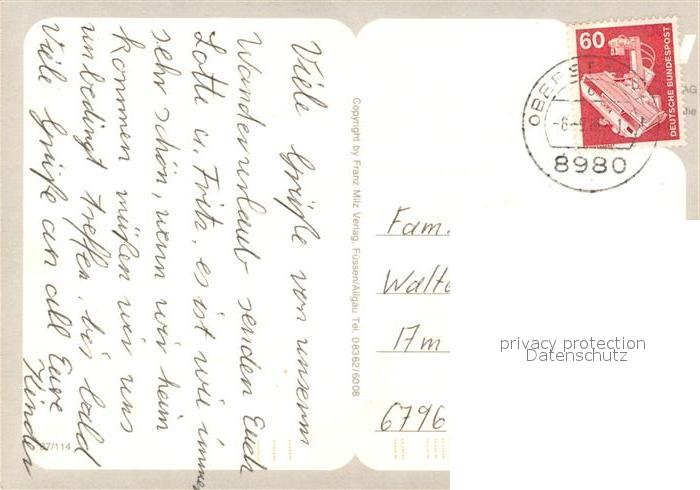 Viele Grüße von unserm
Wanderurlaub senden Euch
Lotte u. Fritz, es ist wie immer
sehr schön, wenn wir heim
kommen müßen wir uns
unbedingt treffen, bis bald
Viele Grüße an all Eure
Kinder
97/114
Copyright by Franz Milz Verlag, Füssen/Allgäu Tel. 08362/6008
60
DEUTSCHE BUNDESPOST
OBERST
8980
Fam.
Walte
17m
6796
privacy protection
Datenschutz